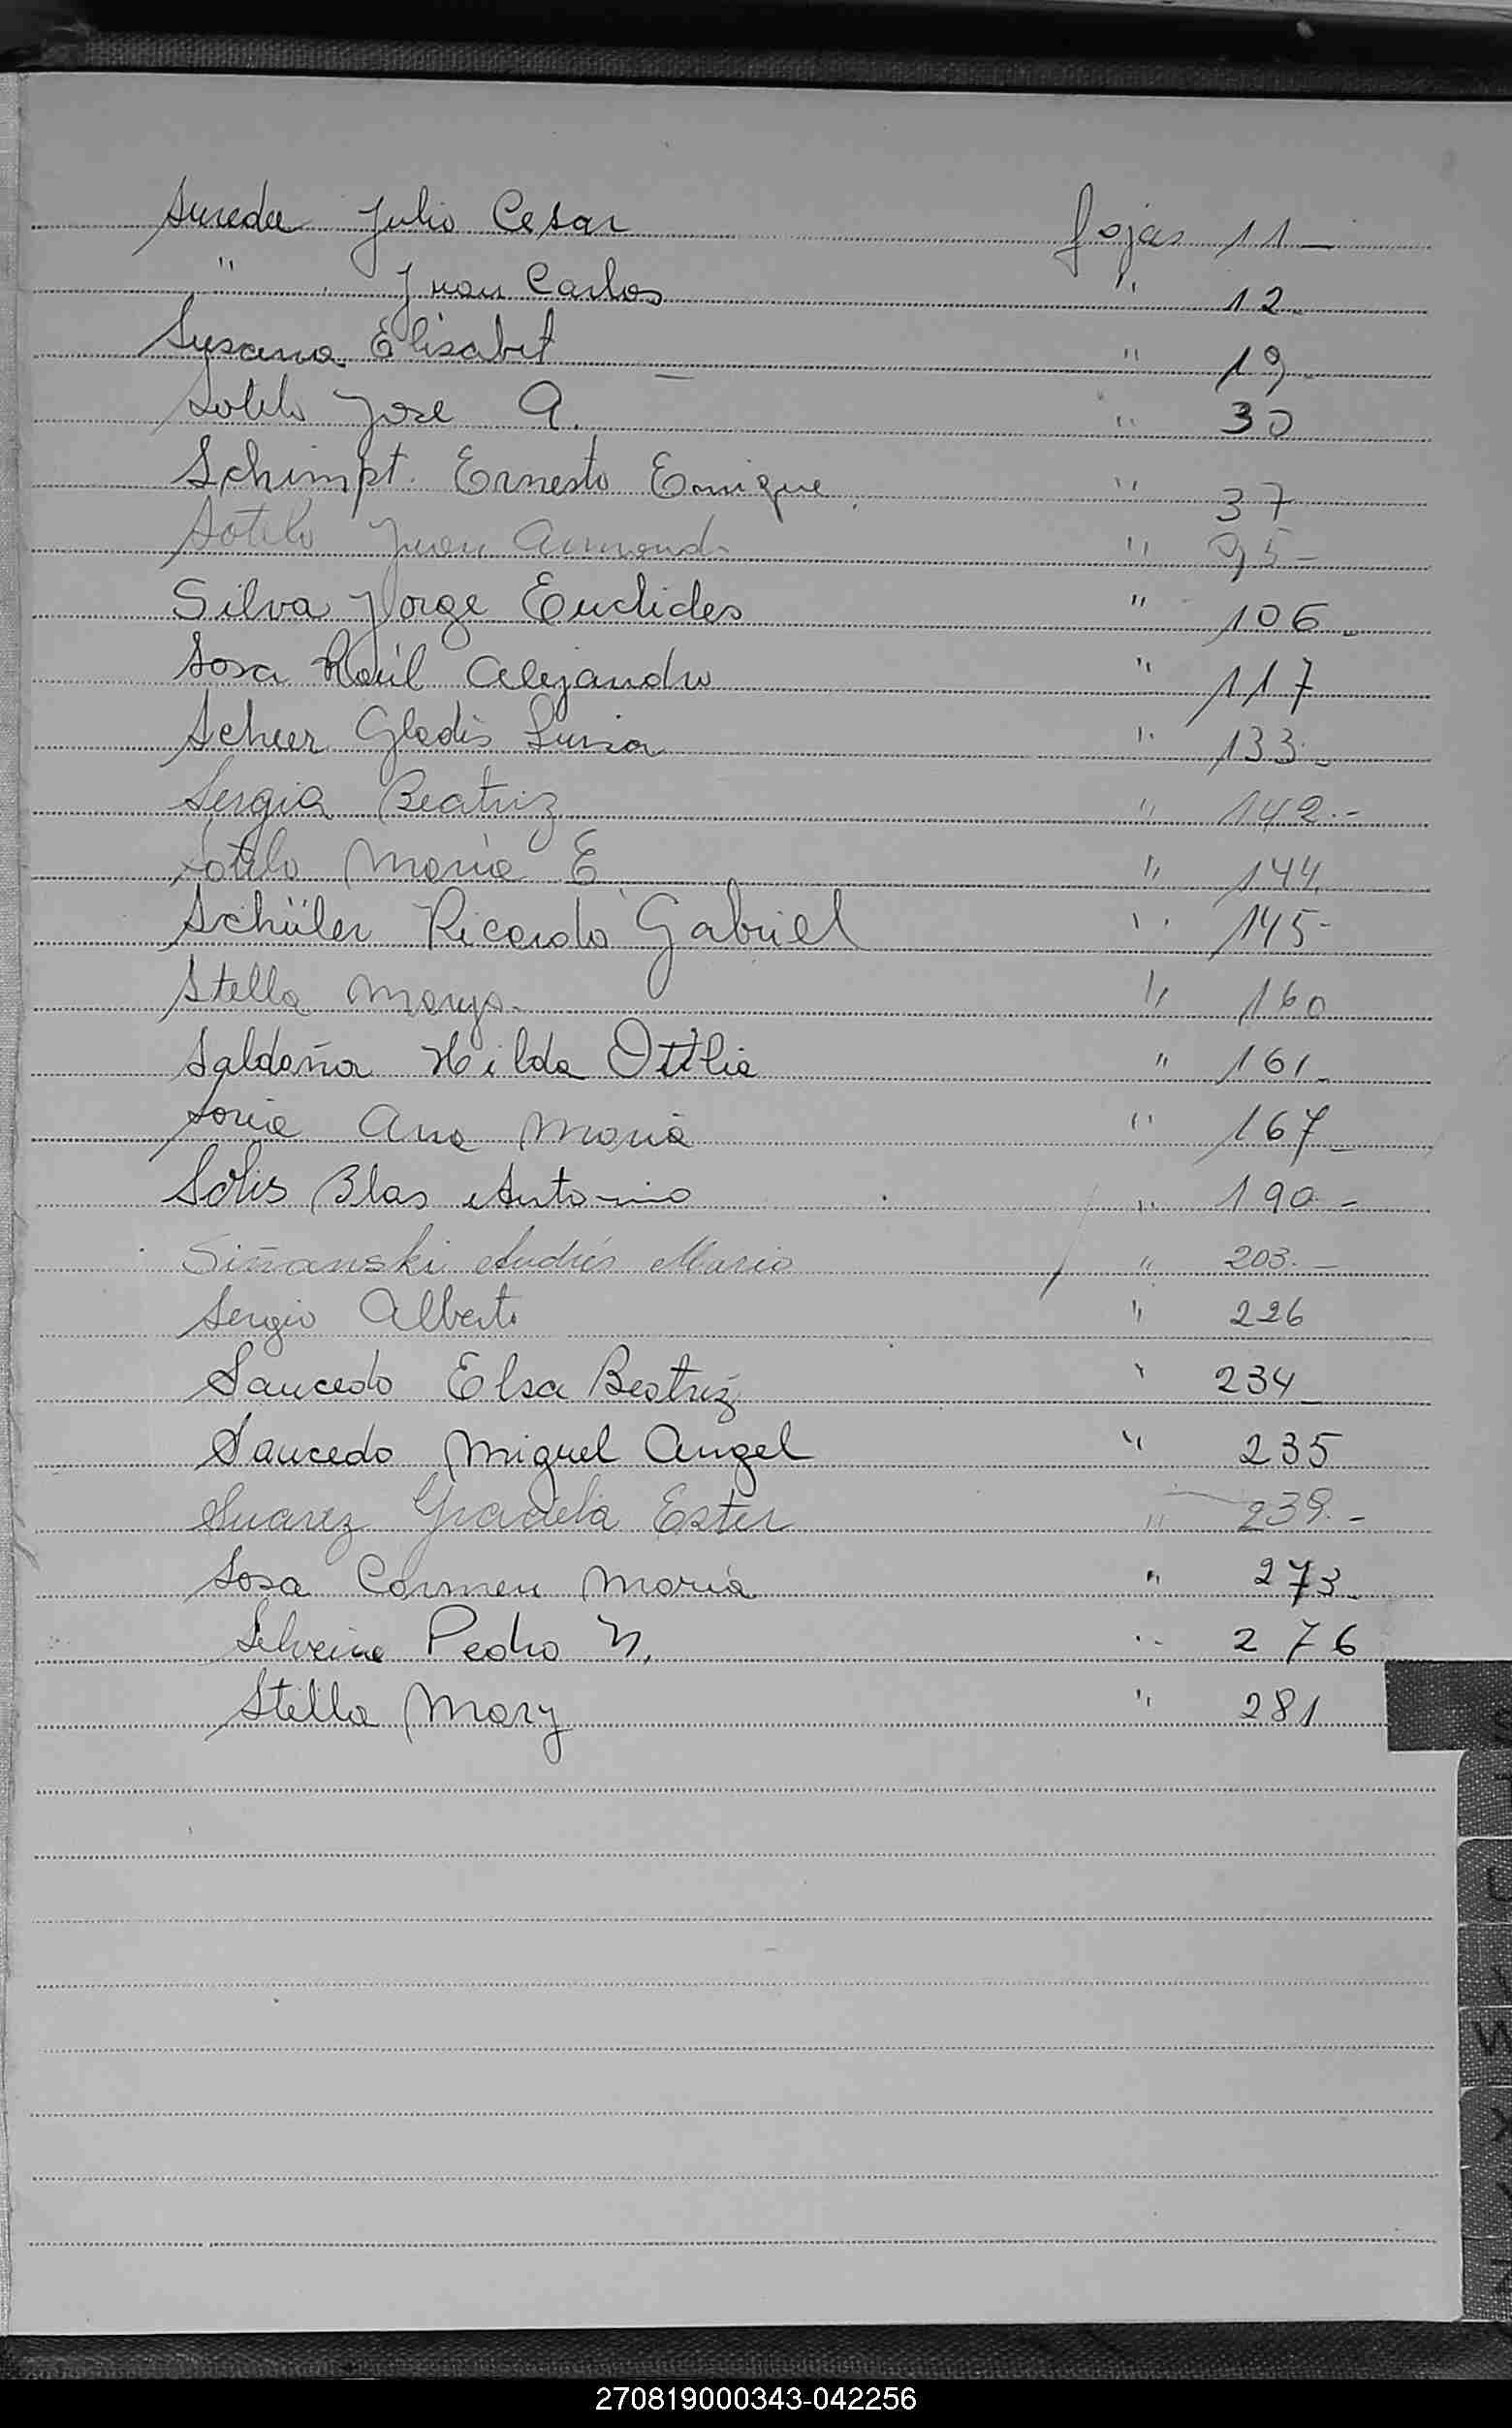 Sureda Julio Cesar fojas 11-
" Juan Carlos " 12-
Susana Elisabet " 19-
Sotelo Jose A. " 30
Schimpt. Ernesto Enrique " 37
Sotelo Juan Armando " 95-
Silva Jorge Euclides " 106-
Sosa Raúl Alejandro " 117
Scheer Gladis Luisa " 133-
Sergia Beatriz " 142.-
Sotelo Maria E " 144
Schüler Ricardo Gabriel " 145-
Stella " 160
Saldaña Hilda Otilia " 161-
Soria Ana Maria " 167-
Solis Blas Antonio " 190-
Siñanski Andrés Mario " 203.-
Sergio Alberto " 226
Saucedo Elsa Beatriz " 234-
Saucedo Miguel Angel " 235
Suarez Graciela Ester " 239.-
Sosa Carmen Maria " 273-
Pedro N. " 276
Stella Mary " 281
U
V
W
X
Y
Z
270819000343-042256